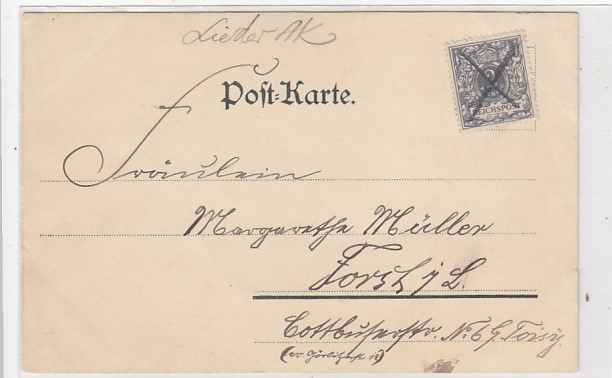 Lieder AK
Post-Karte.
2
REICHSPOST
Fräulein
Margarethe Müller
Forst i/L.
Cottbuserstr. No. 69